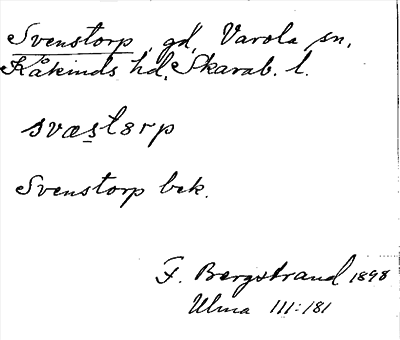 Svenstorp, gd, Varola sn,
Kåkinds hd, Skarab. l.
svæstɜrp
Svenstorp bek.
F. Bergstrand 1898
Ulma 111:181